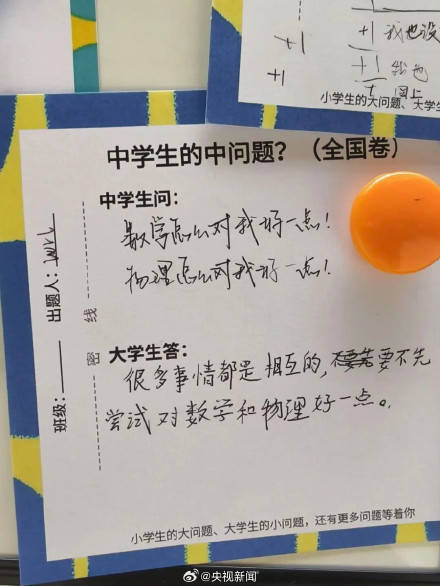 +1
+1 我也没
+1
+1 我也
+ 同上
小学生的大问题、大学生
中学生的中问题？（全国卷）
中学生问：
数学怎么对我好一点！
物理怎么对我好一点！
出题人：
线
密
班级：
大学生答：
很多事情都是相互的，要不先
尝试对数学和物理好一点。
小学生的大问题、大学生的小问题，还有更多问题等着你
@央视新闻